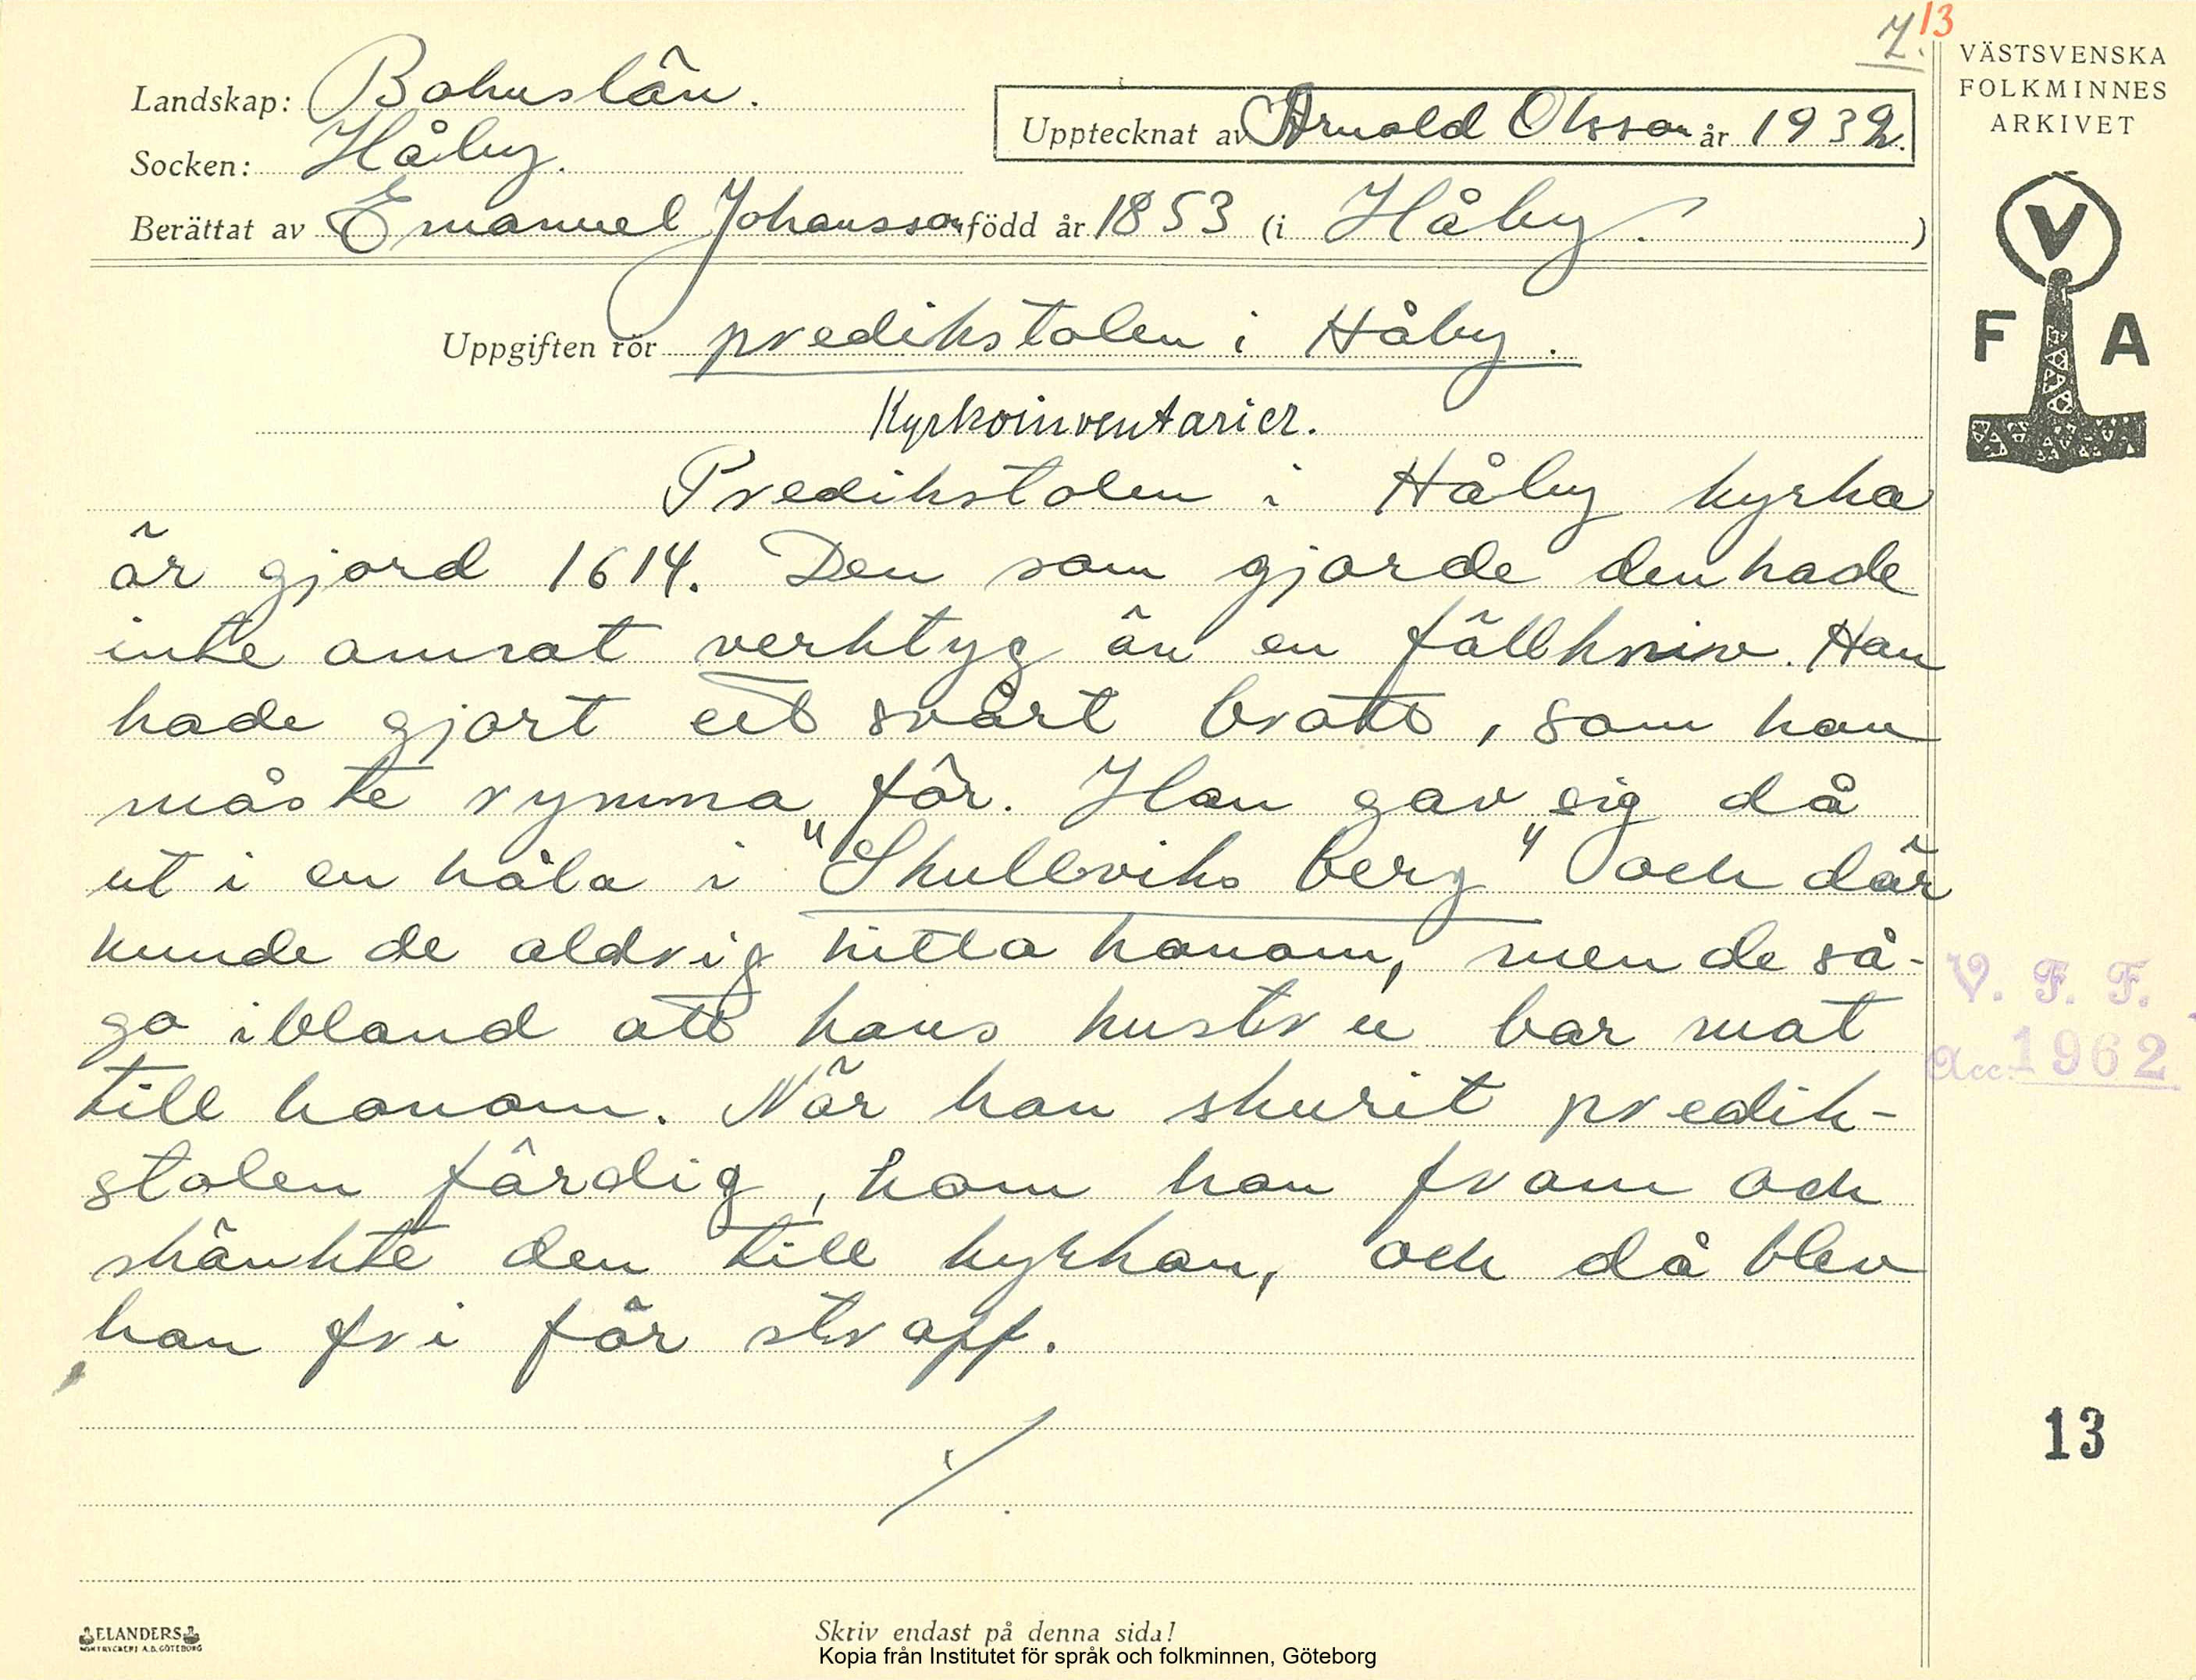 7. 13
VÄSTSVENSKA
FOLKMINNES
ARKIVET
Landskap: Bohuslän.
Upptecknat av Arnold Olsson år 1932.
Socken: Håby.
Berättat av Emanuel Johansson född år 1853 (i Håby. )
V
F A
Uppgiften rör predikstolen i Håby.
Kyrkoinventarier.
Predikstolen i Håby kyrka
är gjord 1614. Den som gjorde den hade
inte annat verktyg än en fällkniv. Han
hade gjort ett svårt brott, som han
måste rymma för. Han gav sig då
ut i en håla i "Skulleviks berg" och där
kunde de aldrig hitta honom, men de så-
go ibland att hans hustru bar mat
till honom. När han skurit predik-
stolen färdig, kom han fram och
skänkte den till kyrkan, och då blev
han fri för straff.
V. F. F.
Acc. 1962
13
ELANDERS
BOKTRYCKERI A.B. GÖTEBORG
Skriv endast på denna sida!
Kopia från Institutet för språk och folkminnen, Göteborg